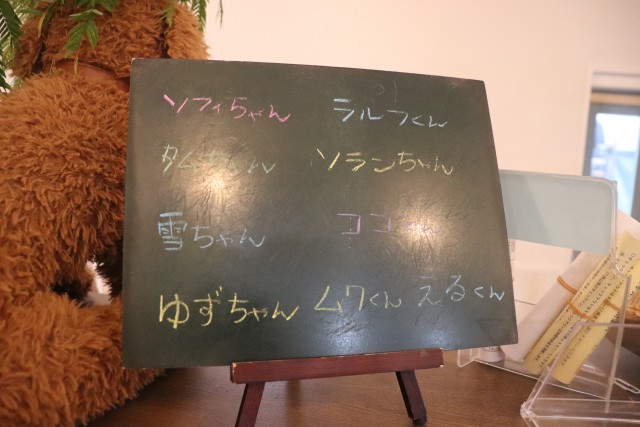 ソフィちゃん ラルフくん
タムちゃん ソランちゃん
雪ちゃん ココちゃん
ゆずちゃん ムクくん えるくん